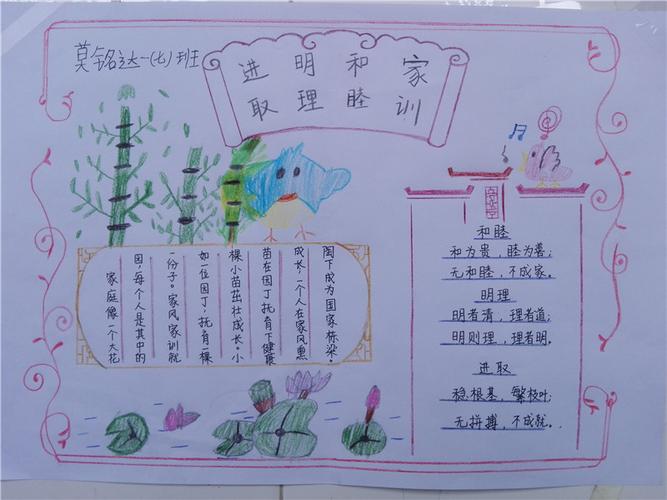 莫铭达一(七)班
家训
和睦
明理
进取
家庭像一个大花
园,每个人是其中的
一份子。家风家训就
如一位园丁,抚育一棵
棵小苗茁壮成长。小
苗在园丁抚育下健康
成长,一个人在家风熏
陶下成为国家栋梁。
和睦
和为贵,睦为善;
无和睦,不成家。
明理
明者清,理者道;
明则理,理者明。
进取
稳根基,繁枝叶;
无拼搏,不成就。